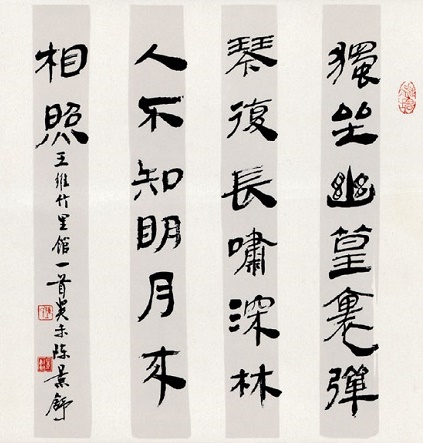 獨坐幽篁裏彈
琴復長嘯深林
人不知明月來
相照
王維竹里館一首癸未陈景舒